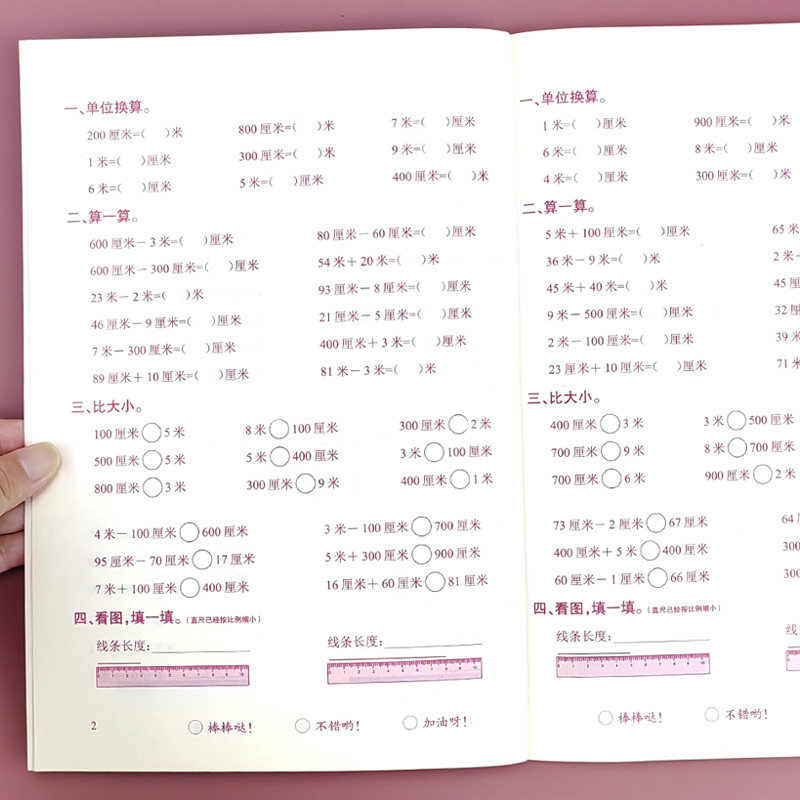 一、单位换算。
200 厘米=(  )米  800 厘米=(  )米  7 米=(  )厘米
1 米=(  )厘米  300 厘米=(  )米  9 米=(  )厘米
6 米=(  )厘米  5 米=(  )厘米  400 厘米=(  )米
二、算一算。
600 厘米－3 米=(  )厘米  80 厘米－60 厘米=(  )厘米
600 厘米－300 厘米=(  )厘米  54 米＋20 米=(  )米
23 米－2 米=(  )米  93 厘米－8 厘米=(  )厘米
46 厘米－9 厘米=(  )厘米  21 厘米－5 厘米=(  )厘米
7 米－300 厘米=(  )厘米  400 厘米＋3 米=(  )厘米
89 厘米＋10 厘米=(  )厘米  81 米－3 米=(  )米
三、比大小。
100 厘米○5 米  8 米○100 厘米  300 厘米○2 米
500 厘米○5 米  5 米○400 厘米  3 米○100 厘米
800 厘米○3 米  300 厘米○9 米  400 厘米○1 米
4 米－100 厘米○600 厘米  3 米－100 厘米○700 厘米
95 厘米－70 厘米○17 厘米  5 米＋300 厘米○900 厘米
7 米＋100 厘米○400 厘米  16 厘米＋60 厘米○81 厘米
四、看图,填一填。(直尺已经按比例缩小)
线条长度:  线条长度:
0 1 2 3 4 5 6 7 8 9 10  0 1 2 3 4 5 6 7 8 9 10
2  棒棒哒!  不错哟!  加油呀!
一、单位换算。
1 米=(  )厘米  900 厘米=(  )米
6 米=(  )厘米  8 米=(  )厘米
4 米=(  )厘米  300 厘米=(  )米
二、算一算。
5 米＋100 厘米=(  )厘米  65 米
36 米－9 米=(  )米  2 米－
45 米＋40 米=(  )米  45 厘
9 米－500 厘米=(  )厘米  32 厘
2 米－100 厘米=(  )厘米  39 米
23 厘米＋10 厘米=(  )厘米  71 米
三、比大小。
400 厘米○3 米  3 米○500 厘米
700 厘米○9 米  8 米○700 厘米
700 厘米○6 米  900 厘米○2 米
73 厘米－2 厘米○67 厘米  64
400 厘米＋5 米○400 厘米  300
60 厘米－1 厘米○66 厘米  300
四、看图,填一填。(直尺已经按比例缩小)
线条长度:  线条
0 1 2 3 4 5 6 7 8 9 10
棒棒哒!  不错哟!